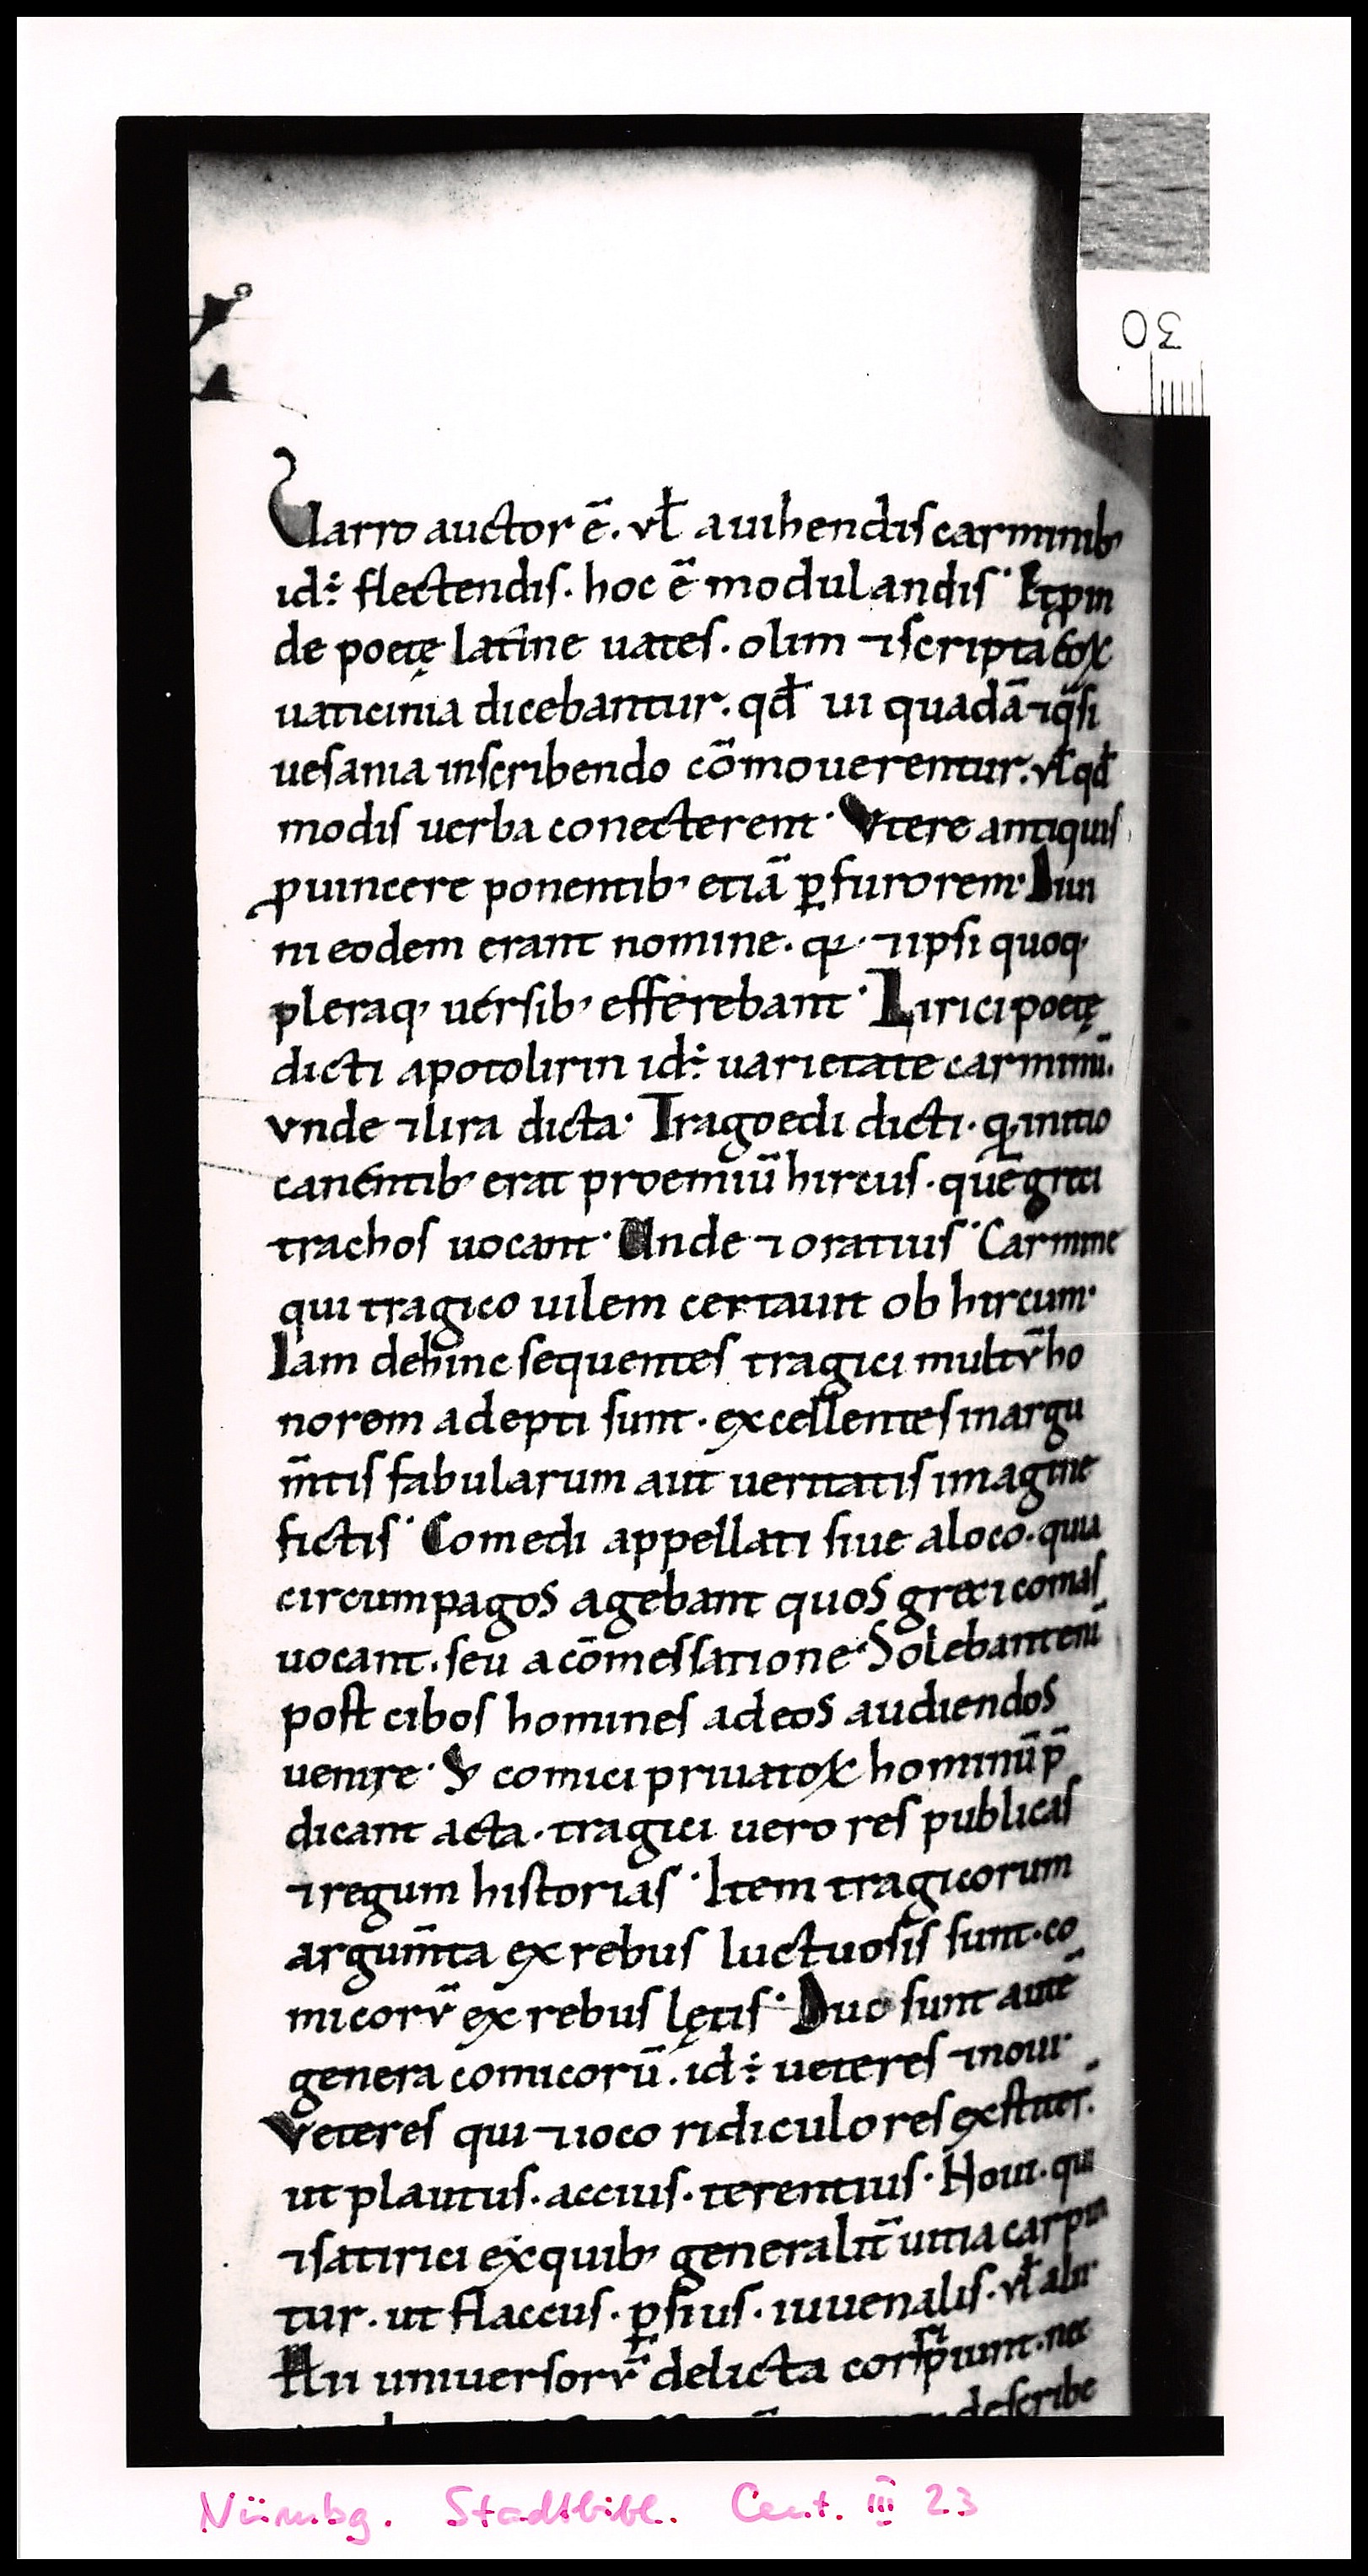 30
Varro auctor ē. vł auihendis carminib;
id÷ flectendis. hoc ē modulandis· Et ꝓin
de poetę latine uates. olim ⁊ scripta eoꝝ
uaticinia dicebantur. qđ ui quadā ⁊ q̄si
uesania inscribendo cōmouerentur. vł qđ
modis uerba conecterent· Vtere antiquis
ꝓ uincere ponentib; etiā ꝑ furorem· Diui
ni eodem erant nomine. q̈ ⁊ ipsi quoq;
pleraq; uérsib; efferebant· Lirici poetę
dicti apotolirin id÷ uarietate carminū.
vnde ⁊ lira dicta· Tragoedi dicti. q initio
canéntib; erat proemiū hircus. quē greci
trachos uocant· Unde ⁊ oratius· Carmine
qui tragico uilem certauit ob hircum·
Iam dehinc sequentes tragici multv̄ ho
norem adepti sunt. excellentes in argu
m̄tis fabularum aut ueritatis imagine
fictis· Comedi appellati siue aloco. quia
circum pagos agebant quos greci comas
uocant. seu acōmessatione· Solebant eni
post cibos homines ad eos audiendos
uenire· S; comici priuatoꝝ hominū p̄
dicant acta. tragici uero res publicas
⁊ regum historias· Item tragicorum
argum̄ta ex rebus luctuosis sunt. co
micorv̄ ex rebus lętis· Duo sunt autē
genera comicorū. id÷ ueteres ⁊ noui·
Veteres qui ⁊ ioco ridiculores exstiter̄.
ut plautus. accius. terentius· Noui. qui
⁊ satirici exquib; generalit̄ uitia carpun
tur. ut flaccus. ꝑsius. iuuenalis. vł alii·
Hii uniuersorv̄ delicta corripiunt. nec
describe
Nürnbg. Stadtbibl. Cent. III 23